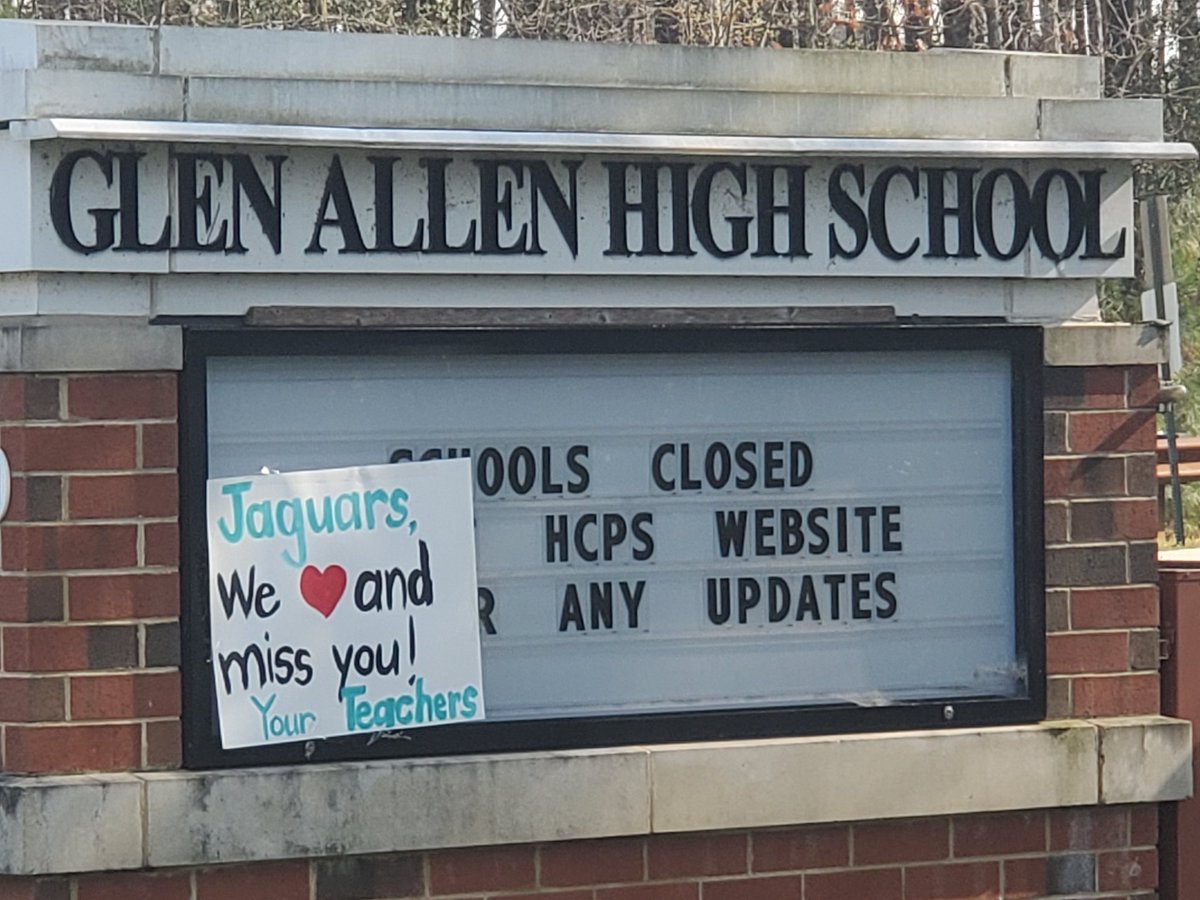 GLEN ALLEN HIGH SCHOOL
SCHOOLS CLOSED
HCPS WEBSITE
ANY UPDATES
Jaguars,
We ❤ and
miss you!
Your Teachers